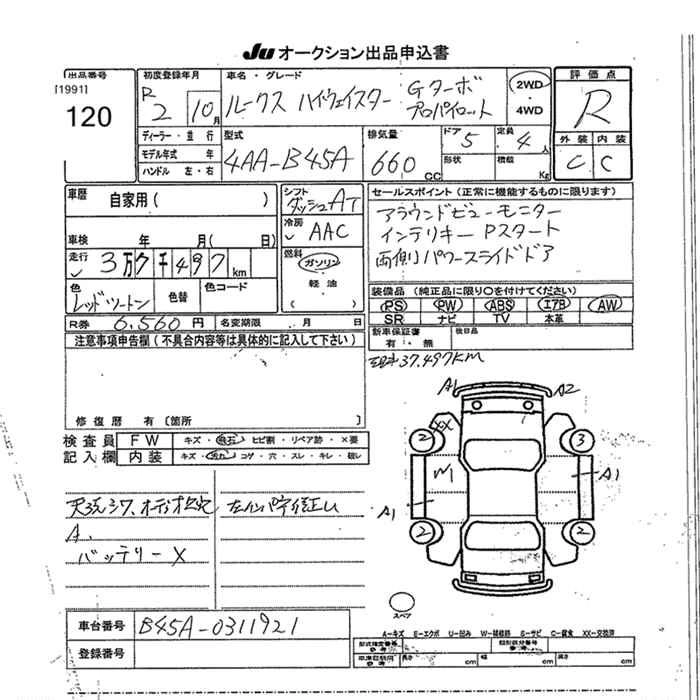 JU オークション出品申込書
出品番号 初度登録年月 車名・グレード 評価点
[1991]
120
R 2 10月 ルークス ハイウェイスター Gターボ プロパイロット 2WD・4WD R
ディーラー・並行 型式 排気量 ドア 定員 外装 内装
モデル年式 年 4AA-B45A 660CC 5 4人 C C
ハンドル 左・右 形状 積載 Kg
車歴 自家用( ) シフト ダッシュAT セールスポイント(正常に機能するものに限ります)
冷房 AAC アラウンドビューモニター
車検 年 月( 日) インテリキー Pスタート
走行 3万7千497km 燃料 ガソリン・軽油( ) 両側パワースライドドア
色 レッドツートン 色替 色コード
装備品(純正品に限り○を付けてください)
PS PW ABS エアB AW
SR ナビ TV 本革
R券 6.560円 名変期限 月 日 新車保証書 有・無 後日品
注意事項申告欄(不具合内容等は具体的に記入して下さい)
37.497KM
修復歴 有〔箇所 〕
検査員 FW キズ・飛石・ヒビ割・リペア跡・×要
記入欄 内装 キズ・汚れ・コゲ・穴・スレ・キレ・破レ
A1 A2
2 XX 3
M1 A1
A1
2 2
バッテリーX
スペア
車台番号 B45A-0311921
登録番号
A-キズ E-エクボ U-凹ミ W-補修跡 S-サビ C-腐食 XX-交換済
型式指定番号 参考 類別区分番号 参考
車検証記載 参考 長さ cm 幅 cm 高さ cm